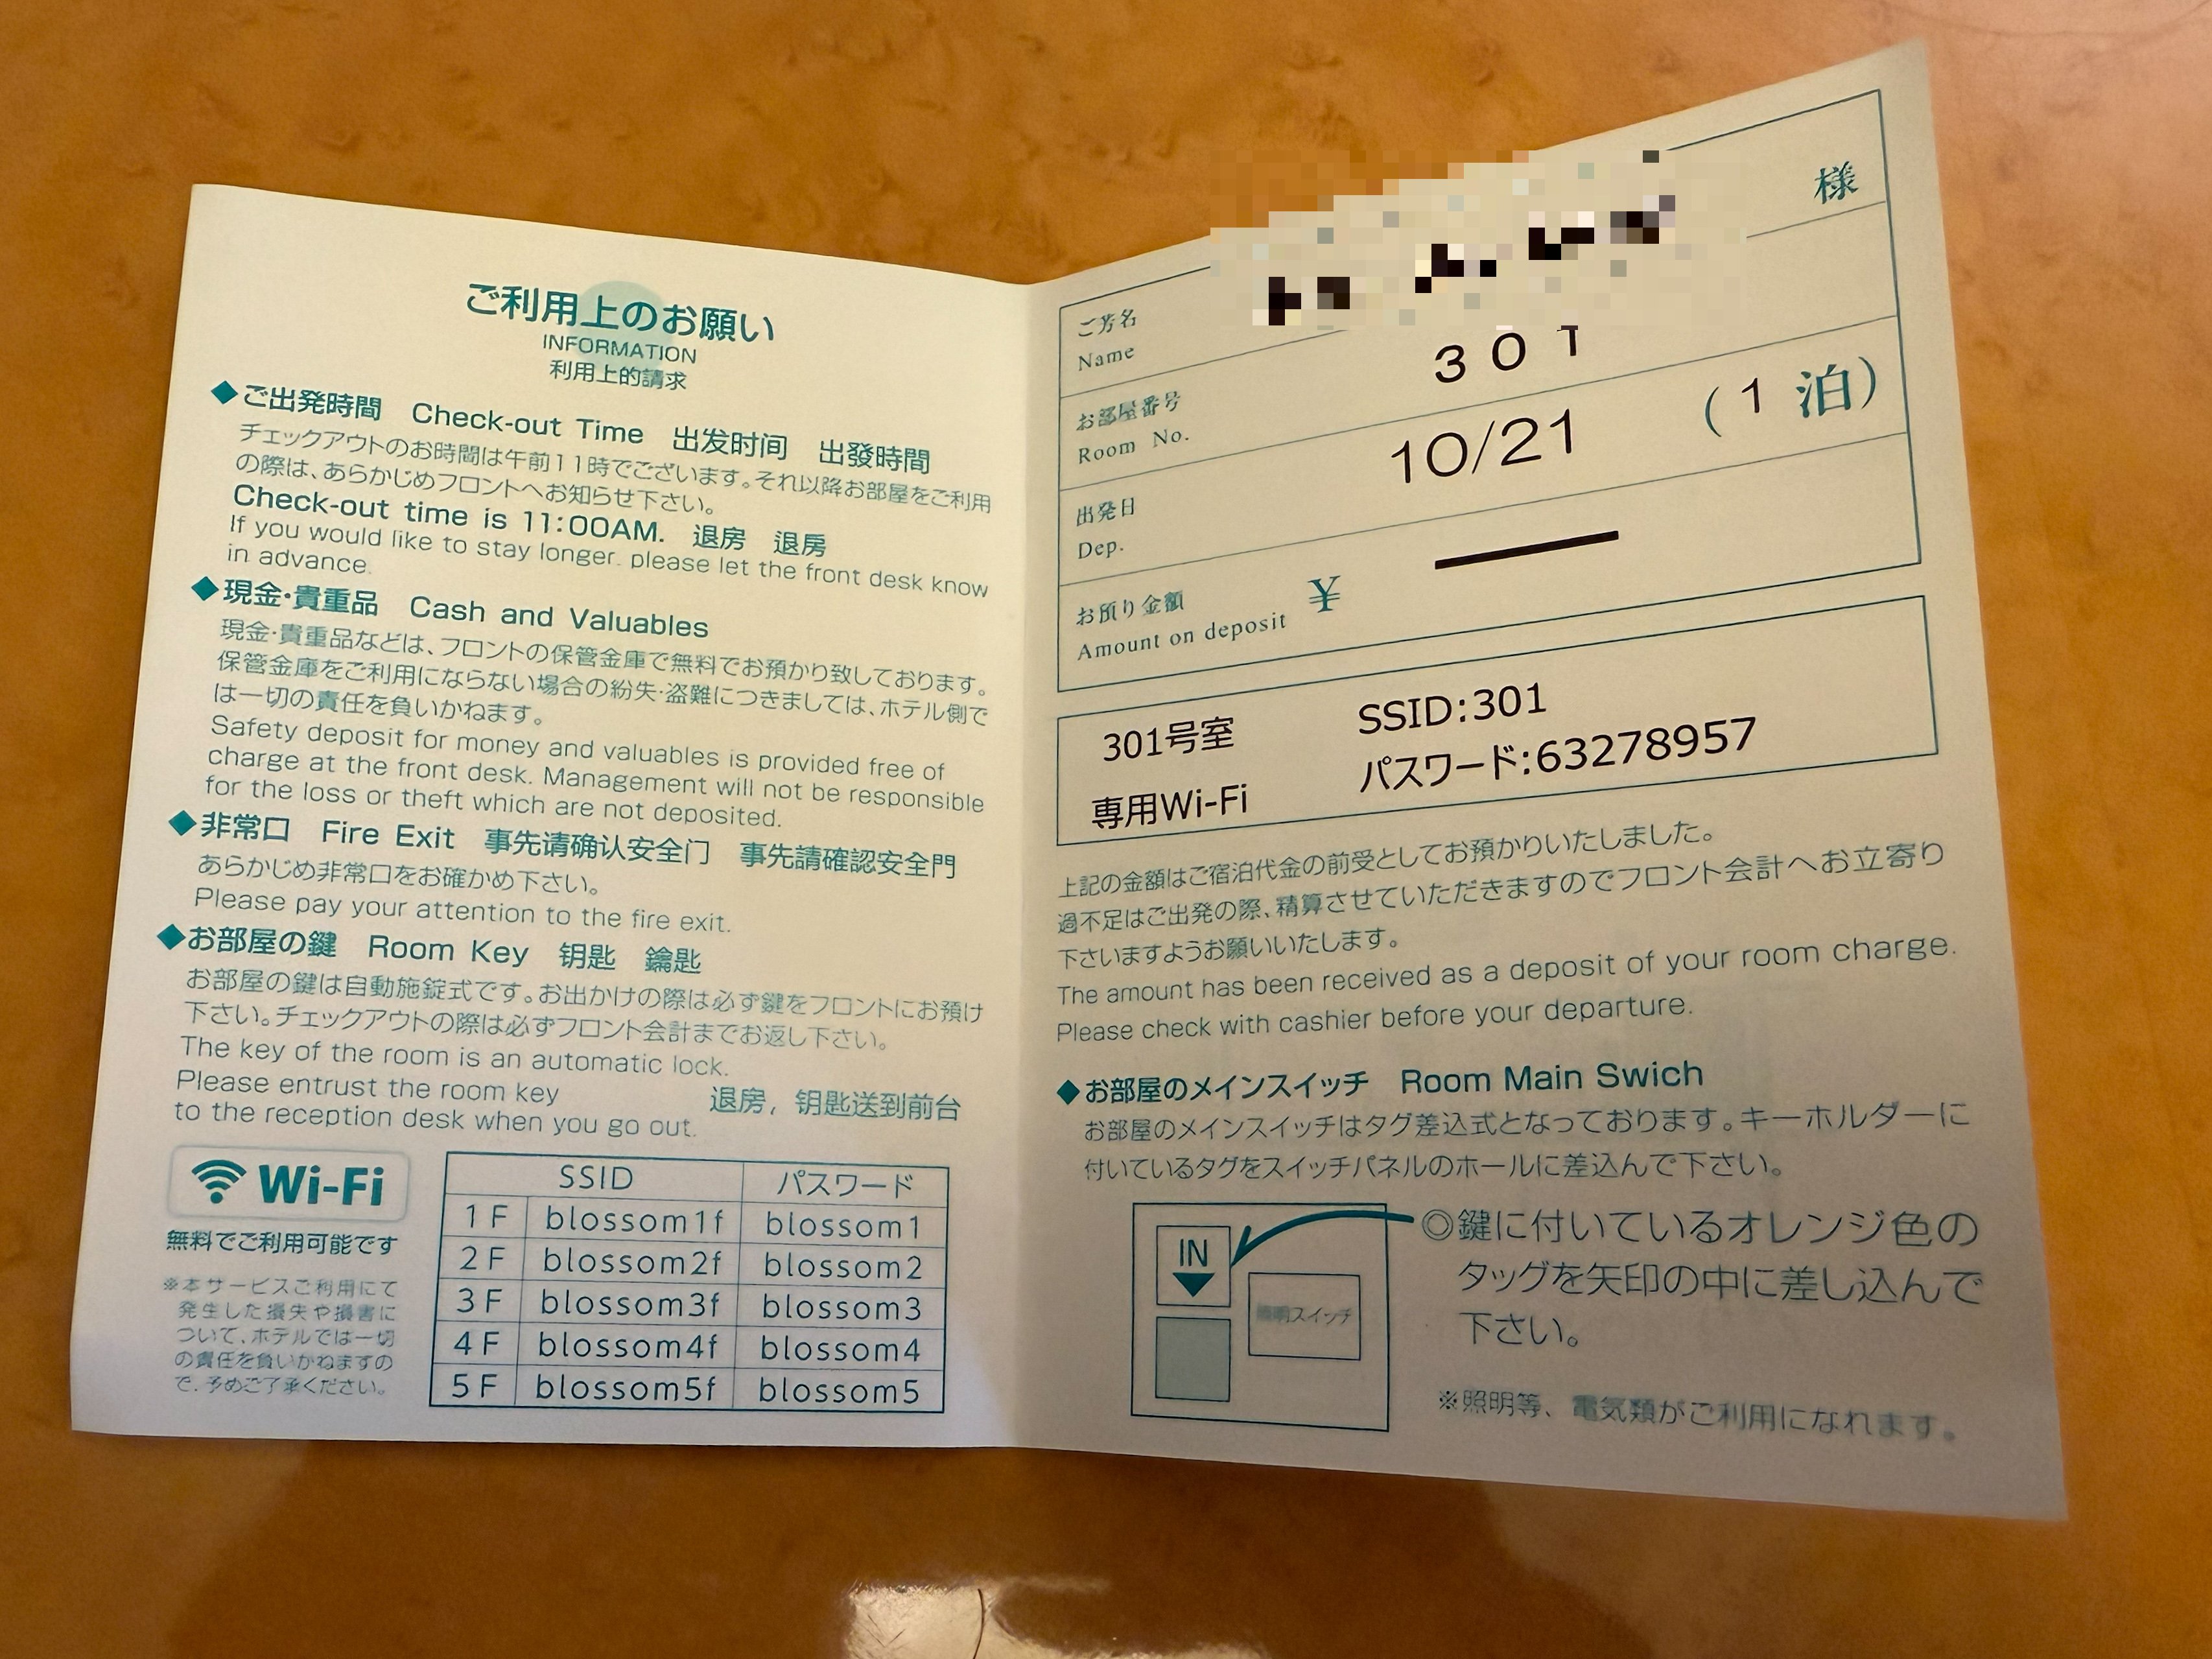 ご利用上のお願い
INFORMATION
利用上的請求
◆ご出発時間 Check-out Time 出发时间 出發時間
チェックアウトのお時間は午前11時でございます。それ以降お部屋をご利用
の際は、あらかじめフロントへお知らせ下さい。
Check-out time is 11:00AM. 退房 退房
If you would like to stay longer. please let the front desk know
in advance.
◆現金・貴重品 Cash and Valuables
現金・貴重品などは、フロントの保管金庫で無料でお預かり致しております。
保管金庫をご利用にならない場合の紛失・盗難につきましては、ホテル側で
は一切の責任を負いかねます。
Safety deposit for money and valuables is provided free of
charge at the front desk. Management will not be responsible
for the loss or theft which are not deposited.
◆非常口 Fire Exit 事先请确认安全门 事先請確認安全門
あらかじめ非常口をお確かめ下さい。
Please pay your attention to the fire exit.
◆お部屋の鍵 Room Key 钥匙 鑰匙
お部屋の鍵は自動施錠式です。お出かけの際は必ず鍵をフロントにお預け
下さい。チェックアウトの際は必ずフロント会計までお返し下さい。
The key of the room is an automatic lock.
Please entrust the room key
to the reception desk when you go out. 退房，钥匙送到前台
Wi-Fi
無料でご利用可能です
※本サービスご利用にて
発生した損失や損害に
ついて、ホテルでは一切
の責任を負いかねますの
で、予めご了承ください。
SSID パスワード
1F blossom1f blossom1
2F blossom2f blossom2
3F blossom3f blossom3
4F blossom4f blossom4
5F blossom5f blossom5
ご芳名
Name
様
お部屋番号
Room No.
301
出発日
Dep.
10/21 (1泊)
お預り金額
Amount on deposit ¥ —
301号室 SSID:301
専用Wi-Fi パスワード:63278957
上記の金額はご宿泊代金の前受としてお預かりいたしました。
過不足はご出発の際、精算させていただきますのでフロント会計へお立寄り
下さいますようお願いいたします。
The amount has been received as a deposit of your room charge.
Please check with cashier before your departure.
◆お部屋のメインスイッチ Room Main Swich
お部屋のメインスイッチはタグ差込式となっております。キーホルダーに
付いているタグをスイッチパネルのホールに差込んで下さい。
IN
照明スイッチ
◎鍵に付いているオレンジ色の
タッグを矢印の中に差し込んで
下さい。
※照明等、電気類がご利用になれます。